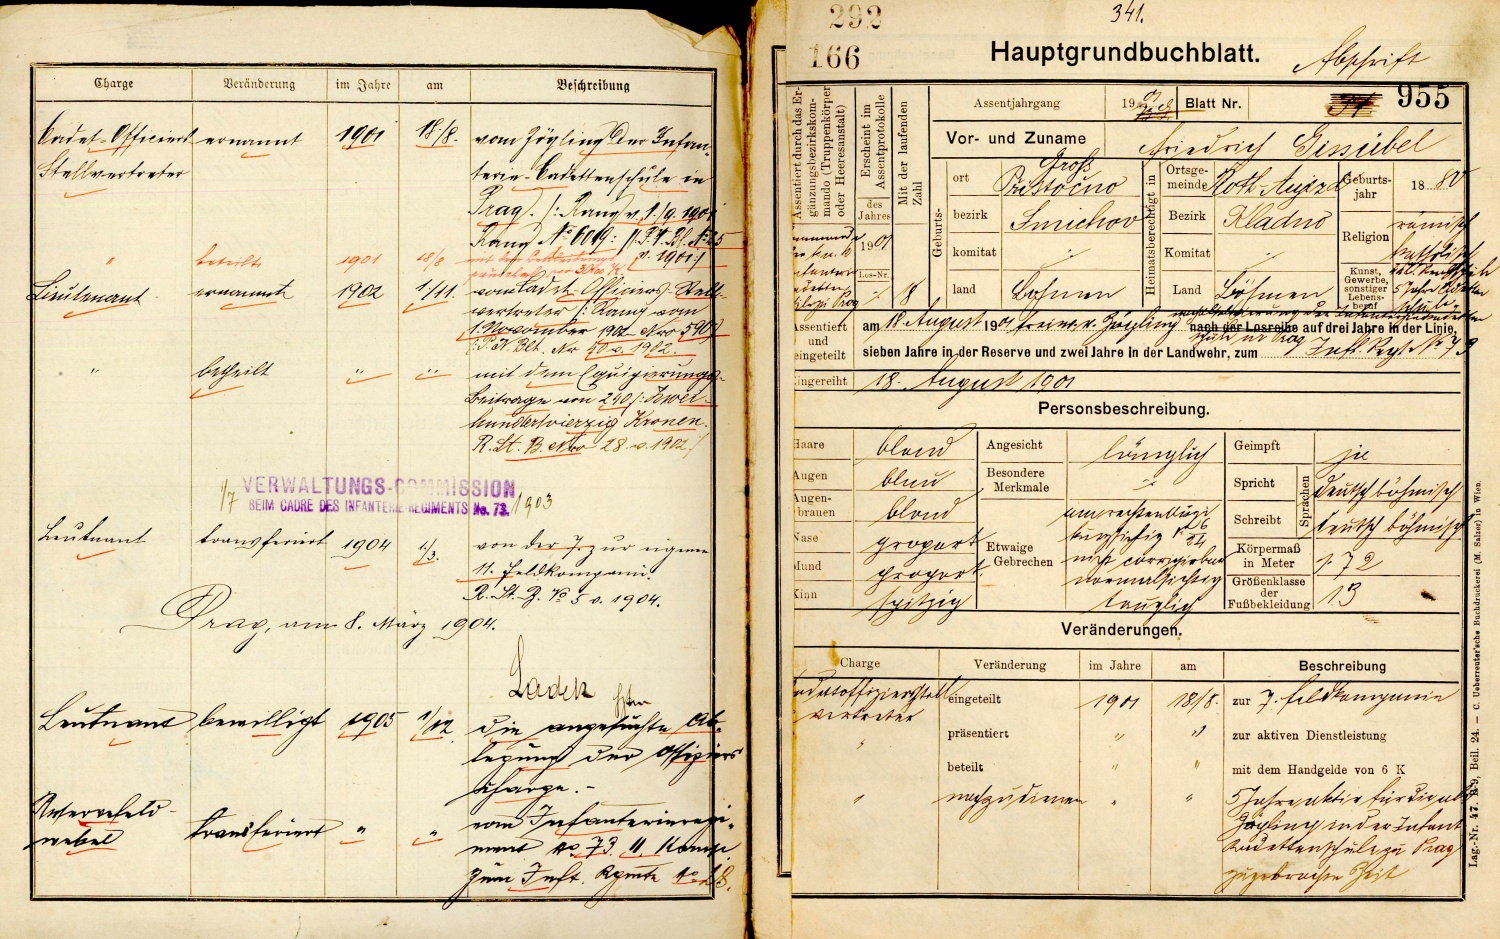 Charge Veränderung im Jahre am Beschreibung
Cadet-Officiers ernannt 1901 18/8. vom Zögling der Infan-
Stellvertreter terie-Cadettenschule in
Prag. (: Rang v. 1./9. 1901
Rang No 6019 :
" beteilt 1901 18/8
v. 1901 :)
Lieutenant ernannt 1902 1/11. vom Cadet-Officiers-Stell-
vertreter (: Rang vom
1. November 1902 Nro 590
P. V. Blt. Nr 40 v. 1902.
" betheilt " " mit dem Equipierungs-
Beitrage von 240 (: Zwei-
hundertvierzig Kronen.
R. St. B. Nro 28 v. 1902 /
1/7 VERWALTUNGS-COMMISSION
BEIM CADRE DES INFANTERIE-REGIMENTS No. 73. 1903
Leutnant transferiert 1904 1/3. von der 7. zur eigenen
11. Feldkompanie.
R. St. B. No 5 v. 1904.
Prag, am 8. März 1904.
Ladek
Leutnant bewilligt 1905 1/12 die angesuchte Ab-
legung der Offiziers
charge. -
Reservefeld-
webel transferiert " " vom Infanterieregi-
ment No 73 11. Komp
zum Inft. Rgmte No 28.
292
166
341.
Hauptgrundbuchblatt. Abschrift
Assentiert durch das Er-
gänzungsbezirkskom-
mando (Truppenkörper
oder Heeresanstalt)
Erscheint im
Assentprotokolle
des
Jahres
1901
Los-Nr.
Mit der laufenden
Zahl
8
Assentjahrgang 1901 Blatt Nr. 955
Vor- und Zuname Friedrich Gissübel
Geburts-
ort Groß
Přístočno
bezirk Smichov
komitat
land Böhmen
Heimatsberechtigt in
Ortsge-
meinde Roth-Aujezd
Bezirk Kladno
Komitat
Land Böhmen
Geburts-
jahr 1880
Religion römisch
katholisch
Kunst,
Gewerbe,
sonstiger
Lebens-
beruf
5 Jahre Kadetten
schule
Assentiert
und
eingeteilt
am 18. August 1901 freiw. v. Zögling nach der Losreihe auf drei Jahre in der Linie,
sieben Jahre in der Reserve und zwei Jahre in der Landwehr, zum Inft. Regt. No 73
Eingereiht 18. August 1901
Personsbeschreibung.
Haare blond
Augen blau
Augen-
brauen blond
Nase proport.
Mund proport.
Kinn spitzig
Angesicht länglich
Besondere
Merkmale
Etwaige
Gebrechen
am rechten Auge
kurzsichtig 6/24
nicht corrigierbar
normalsichtig
tauglich
Geimpft ja
Sprachen
Spricht deutsch böhmisch
Schreibt deutsch böhmisch
Körpermaß
in Meter 1.72
Größenklasse
der
Fußbekleidung 13
Veränderungen.
Charge Veränderung im Jahre am Beschreibung
Kadetoffizierstell
vertreter eingeteilt 1901 18/8. zur 7. Feldkompanie
" präsentiert " " zur aktiven Dienstleistung
beteilt " " mit dem Handgelde von 6 K
" nachzudienen " " 5 Jahre aktiv für die als
Zögling in der Infant
Kadettenschule zu Prag
zugebrachte Zeit
Lag.-Nr. 47. B-9, Beil. 24. — C. Ueberreuter'sche Buchdruckerei (M. Salzer) in Wien.